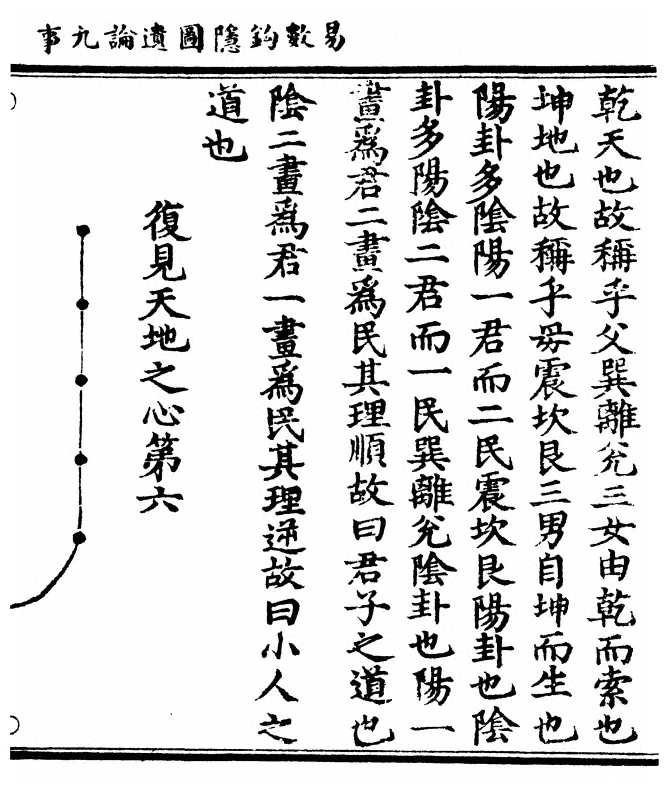 易數鈎隱圖遺論九事
乾天也故稱乎父巽離兊三女由乾而索也
坤地也故稱乎毋震坎艮三男自坤而生也
陽卦多陰陽一君而二民震坎艮陽卦也陰
卦多陽陰二君而一民巽離兊陰卦也陽一
畫爲君二畫爲民其理順故曰君子之道也
陰二畫爲君一畫爲民其理逆故曰小人之
道也
復見天地之心第六